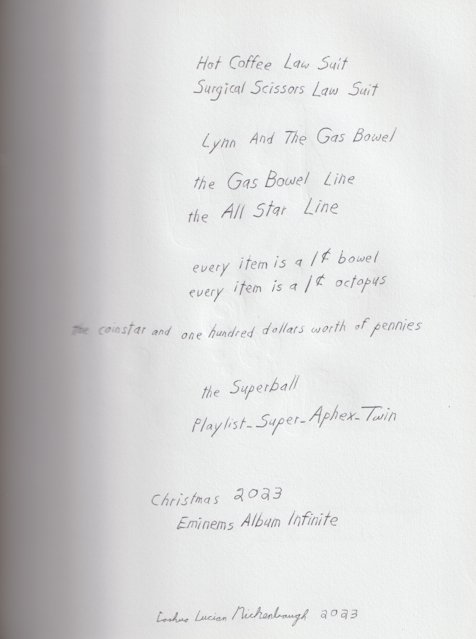 Hot Coffee Law Suit
Surgical Scissors Law Suit
Lynn And The Gas Bowel
the Gas Bowel Line
the All Star Line
every item is a 1¢ bowel
every item is a 1¢ octopus
the coinstar and one hundred dollars worth of pennies
the Superball
Playlist_Super_Aphex_Twin
Christmas 2023
Eminems Album Infinite
Lucian 2023